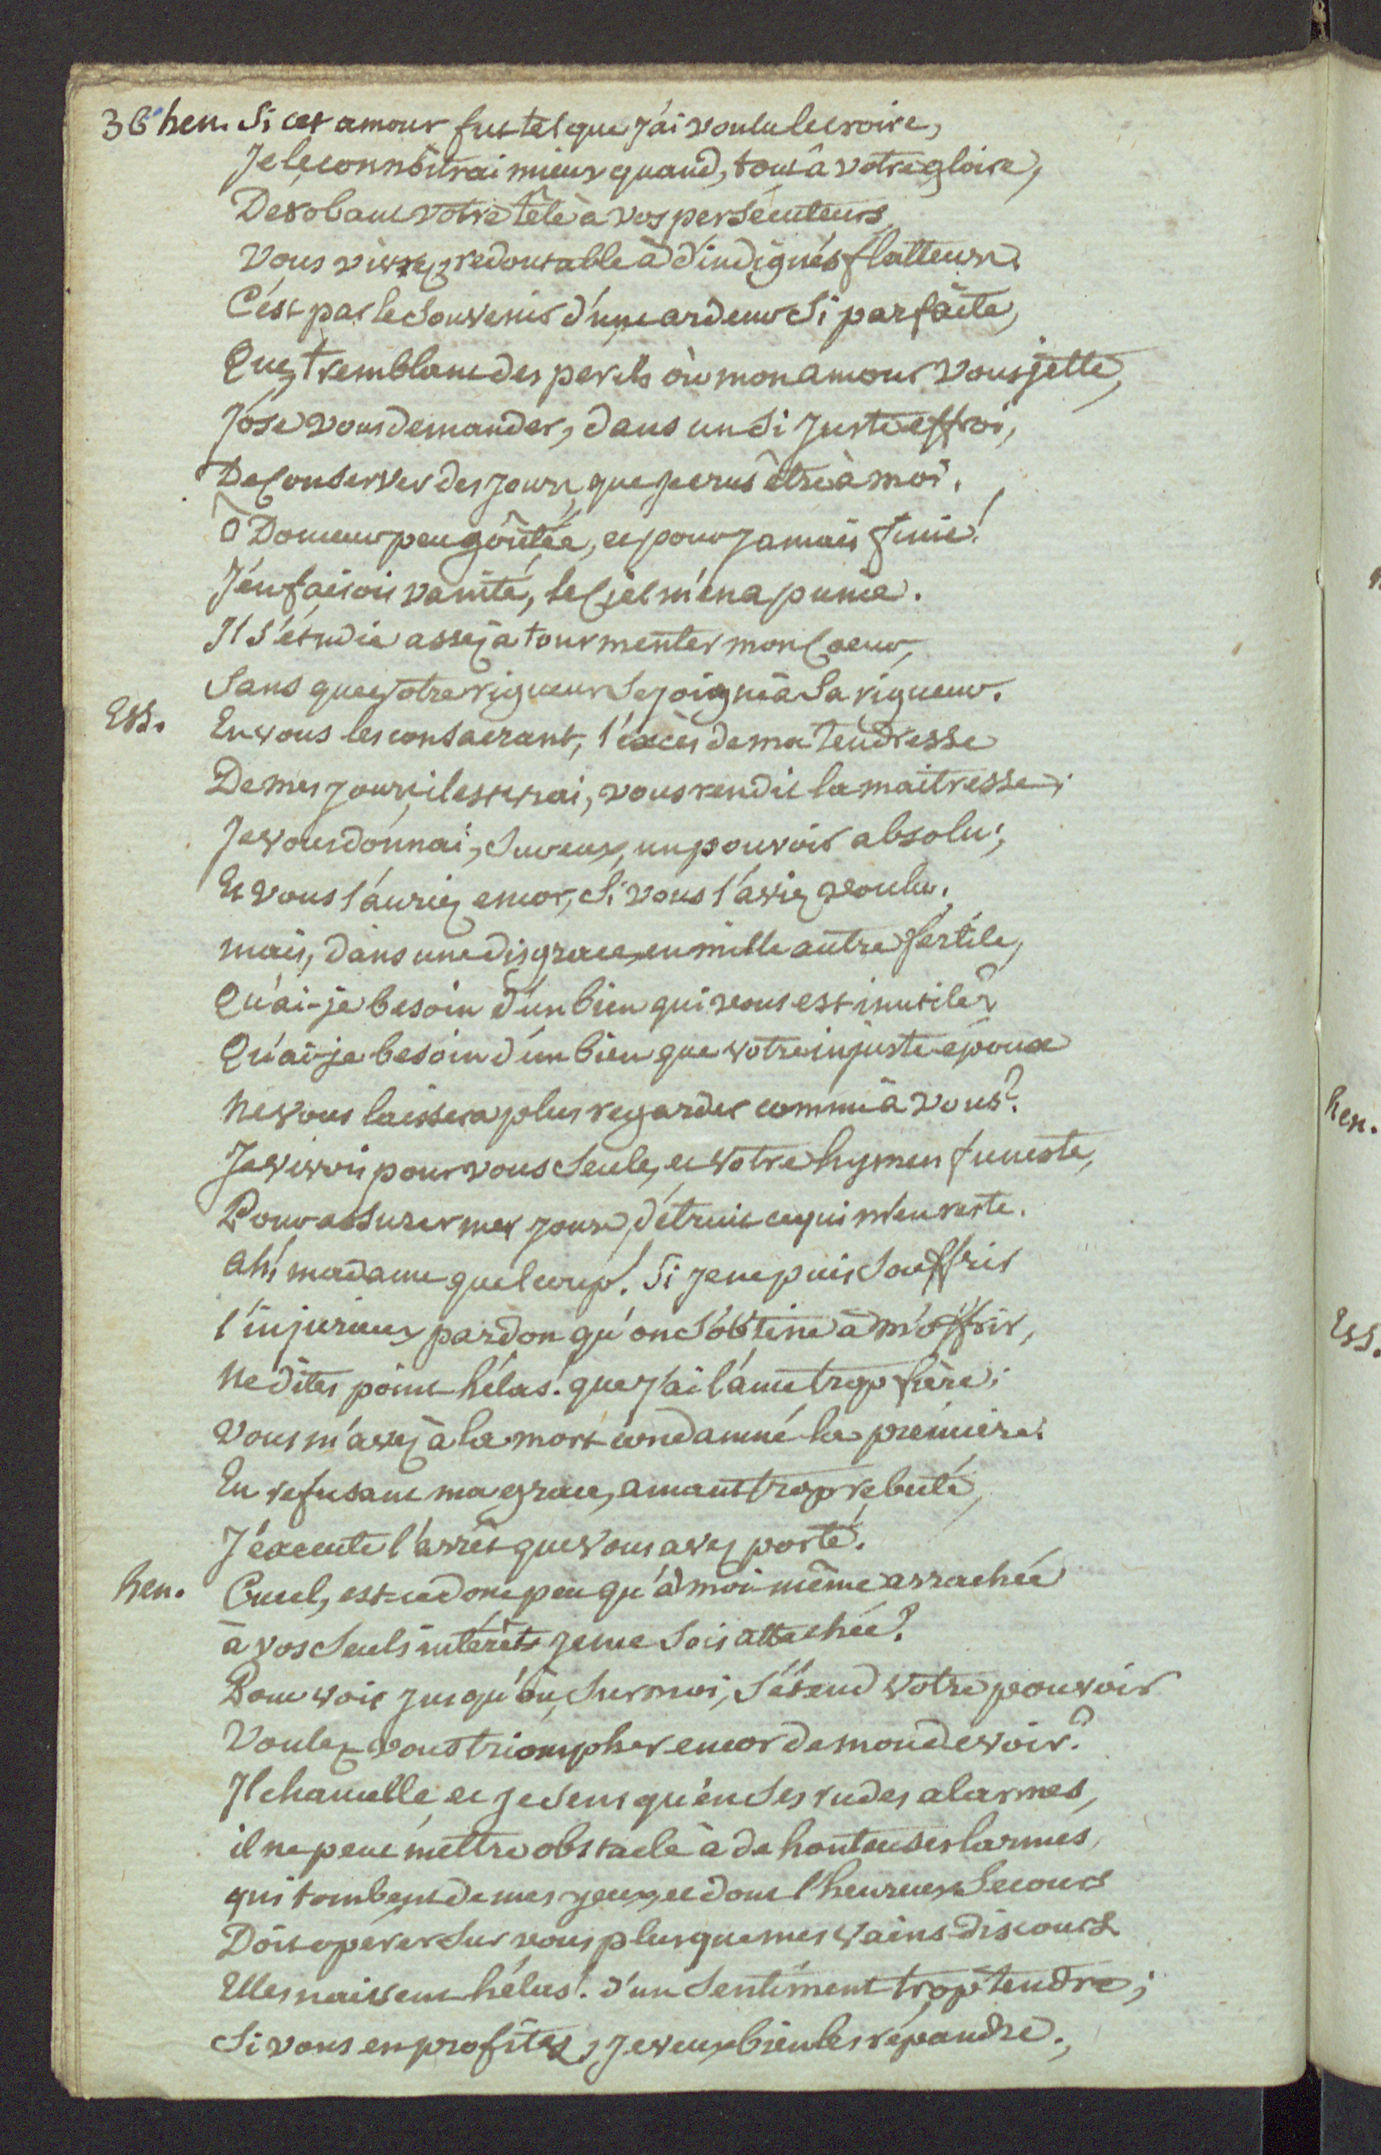 36 hen. Si cet amour fut tel que j'ai voulu le croire,
Je le connoîtrai mieux quand, tout à votre gloire,
Derobant votre tête à vos persécuteurs,
Vous vivrez redoutable à d'indignes flatteurs.
C'est par le souvenir d'une ardeur si parfaite,
Que, tremblant des perils où mon amour vous jette,
J'ose vous demander, dans un si juste effroi,
De Conserver des jours que je crus être à moi.
ô Douceur peu goûtée, et pour jamais finie!
J'en faisois vanité, le Ciel m'en a punie.
Il s'étudie assez à tourmenter mon Coeur,
Sans que votre rigueur se joigne à sa rigueur.
Ess. En vous les consacrant, l'excès de ma tendresse
De mes jours, il est vrai, vous rendit la maitresse;
Je vous donnai, sur eux, un pouvoir absolu;
Et vous l'auriez encor, si vous l'aviez voulu.
mais, dans une disgrace en mille autre fertile,
Qu'ai-je besoin d'un bien qui vous est inutile?
Qu'ai-je besoin d'un bien que votre injuste époux
Ne vous laissera plus regarder comme à vous?
Je vivois pour vous seule, et votre hymen funeste,
Pour assurer mes jours, détruit ce qui m'en reste.
ah! madame quel coup! Si je ne puis souffrir
l'injurieux pardon qu'on s'obstine à m'offrir,
Ne dites point hélas! que j'ai l'âme trop fière;
Vous m'avez à la mort condamné la première.
En refusant ma grace, amant trop rebuté,
J'execute l'arrêt que vous avez porté.
hen. Cruel, est-ce donc peu qu'à moi même arrachée
à vos seuls intérêts je me sois attachée?
Pour voir jusqu'où, sur moi, s'étend votre pouvoir
Voulez-vous triompher encor de mon devoir?
Il chancelle, et je sens qu'en ses rudes alarmes,
il ne peut mettre obstacle à de honteuses larmes,
qui tombent de mes yeux, et dont l'heureux secours
Doit operer sur vous plus que mes vains discours.
Elles naissent hélas! d'un sentiment trop tendre;
Si vous en profitez, je veux bien les répandre.
hen.
Ess.